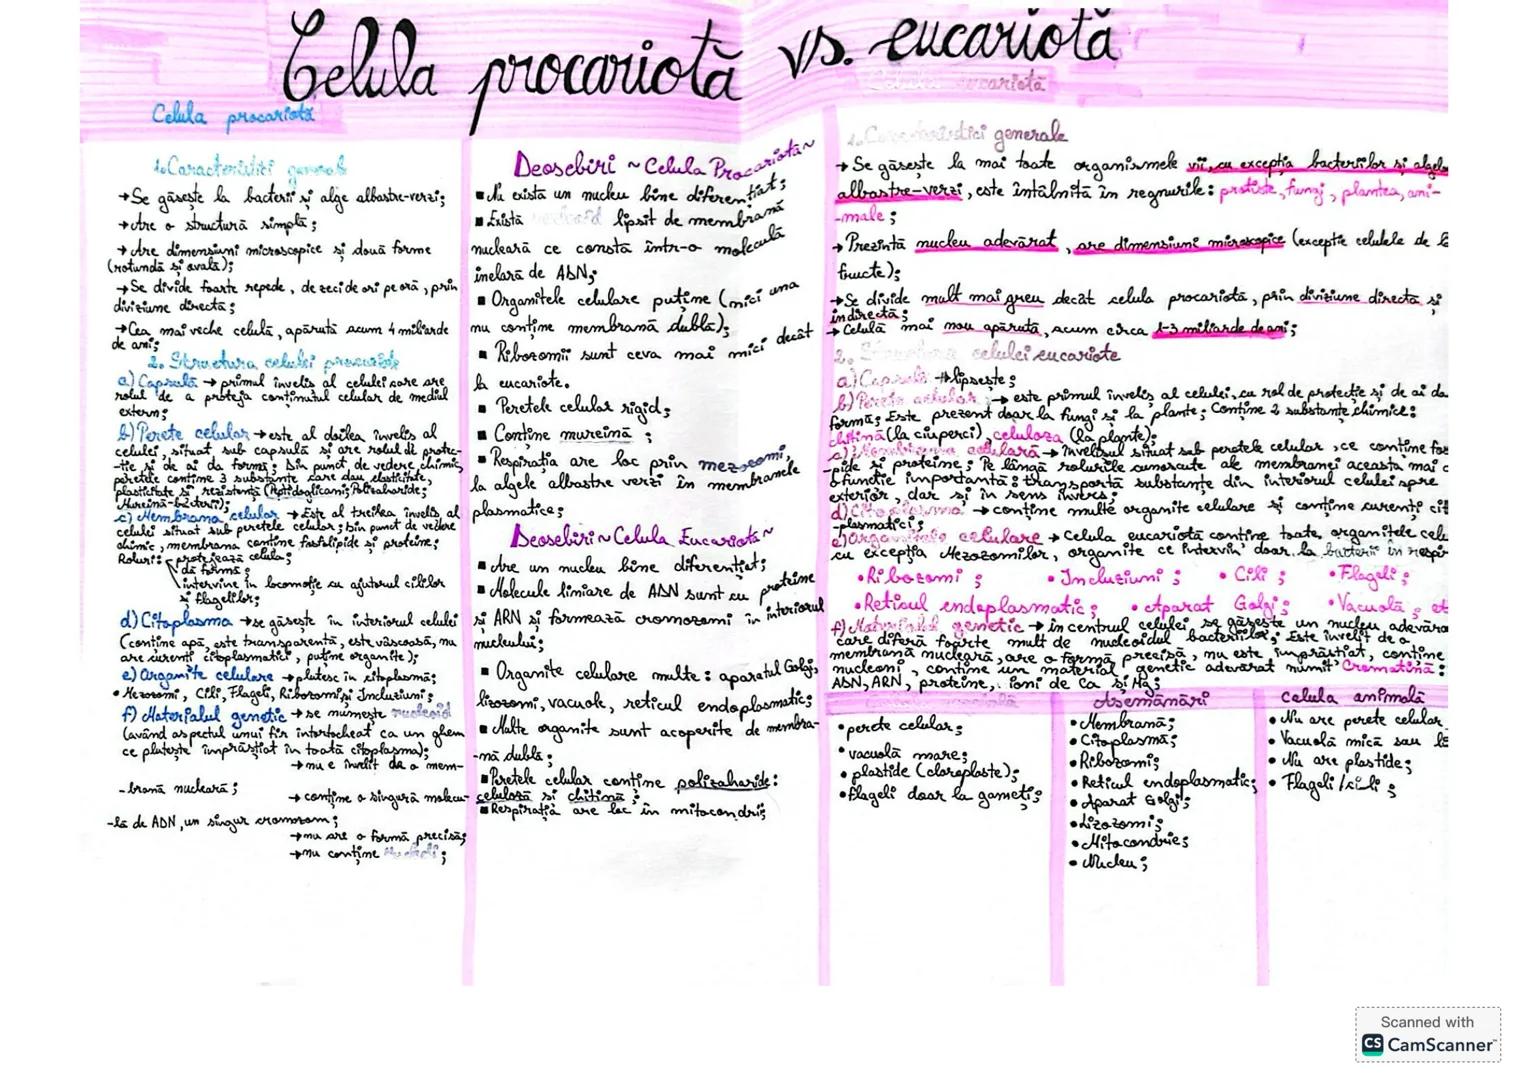 Celula procariotă vs. eucariotă
Celula procariotă
1. Caracteristici generale
→ Se găsește la bacterii și alge albastre-verzi;
→ Are o structură simplă;
→ Are dimensiuni microscopice și două forme
(rotundă și ovală);
→ Se divide foarte repede, de zeci de ori pe oră, prin
diviziune directă;
→ Cea mai veche celulă, apărută acum 4 miliarde
de ani;
2. Structura celulei procariote
a) Capsulă → primul înveliș al celulei care are
rolul de a proteja conținutul celular de mediul
extern;
b) Perete celular → este al doilea înveliș al
celulei, situat sub capsulă și are rolul de protec-
-ție și de ai da formă; Din punct de vedere chimic,
peretele conține 3 substanțe care dau elasticitate,
plasticitate și rezistență (Peptidoglicani; Polizaharide;
Mureină-bacterii);
c) Membrana celular → Este al treilea înveliș al
celulei situat sub peretele celular; Din punct de vedere
chimic, membrana conține fosfolipide și proteine;
Roluri: - protejează celula;
dă formă;
intervine în locomoție cu ajutorul cililor
și flagelilor;
d) Citoplasma → se găsește în interiorul celulei
(conține apă, este transparentă, este vâscoasă, nu
are curenți citoplasmatici, puține organite);
e) Organite celulare → plutesc în citoplasmă;
• Mezozomi, Cili, Flageli, Ribozomi și Incluziuni;
f) Materialul genetic → se numește nucleoid
(având aspectul unui fir întortocheat ca un ghem
ce plutește împrăștiat în toată citoplasma);
→ nu e învelit de o mem-
-brană nucleară;
→ conține o singură molecu-
-lă de ADN, un singur cromozom;
→ nu are o formă precisă;
→ nu conține nucleoli;
Deosebiri ~ Celula Procariotă ~
▪ Nu există un nucleu bine diferențiat;
▪ Există nucleoid lipsit de membrană
nucleară ce constă într-o moleculă
inelară de ADN;
▪ Organitele celulare puține (nici una
nu conține membrană dublă);
▪ Ribozomii sunt ceva mai mici decât
la eucariote.
▪ Peretele celular rigid;
▪ Conține mureină;
▪ Respirația are loc prin mezozomi,
la algele albastre verzi în membranele
plasmatice;
Deosebiri ~ Celula Eucariotă ~
▪ Are un nucleu bine diferențiat;
▪ Molecule liniare de ADN sunt cu proteine
și ARN și formează cromozomi în interiorul
nucleului;
▪ Organite celulare multe: aparatul Golgi,
lizozomi, vacuole, reticul endoplasmatic;
▪ Multe organite sunt acoperite de membra-
-nă dublă;
▪ Peretele celular conține polizaharide:
celuloză și chitină;
▪ Respirația are loc în mitocondrii;
Celula eucariotă
1. Caracteristici generale
→ Se găsește la mai toate organismele vii, cu excepția bacteriilor și algelor
albastre-verzi, este întâlnită în regnurile: protiste, fungi, plantea, ani-
-male;
→ Prezintă nucleu adevărat, are dimensiuni microscopice (excepție celulele de la
fructe);
→ Se divide mult mai greu decât celula procariotă, prin diviziune directă și
indirectă;
→ Celulă mai nou apărută, acum circa 1-3 miliarde de ani;
2. Structura celulei eucariote
a) Capsulă → lipsește;
b) Perete celular → este primul înveliș al celulei, cu rol de protecție și de ai da
formă; Este prezent doar la fungi și la plante; Conține 2 substanțe chimice:
chitină (la ciuperci), celuloza (la plante);
c) Membrana celulară → Învelișul situat sub peretele celular, ce conține fos
-pide și proteine; Pe lângă rolurile cunoscute ale membranei aceasta mai
o funcție importantă: transportă substanțe din interiorul celulei spre
exterior, dar și în sens invers;
d) Citoplasma → conține multe organite celulare și conține curenți cit
-plasmatici;
e) Organite celulare → Celula eucariotă conține toate organitele celu
cu excepția Mezozomilor, organite ce intervin doar la bacterii în respir
• Ribozomi; • Incluziuni; • Cili; • Flageli;
• Reticul endoplasmatic; • Aparat Golgi; • Vacuolă; et
f) Materialul genetic → în centrul celulei se găsește un nucleu adevăra
care diferă foarte mult de nucleoidul bacteriilor; Este învelit de o
membrană nucleară, are o formă precisă, nu este împrăștiat, conține
nucleoni, conține un material genetic adevărat numit Cromatină:
ADN, ARN, proteine, ioni de Ca și Mg;
• perete celular;
• vacuolă mare;
• plastide (cloroplaste);
• flageli doar la gameți;
Asemănări
• Membrană;
• Citoplasmă;
• Ribozomi;
• Reticul endoplasmatic;
• Aparat Golgi;
• Lizozomi;
• Mitocondries
• Nucleu;
celula animală
• Nu are perete celular
• Vacuolă mică sau
• Nu are plastide;
• Flageli/cili;
Scanned with
CS CamScanner